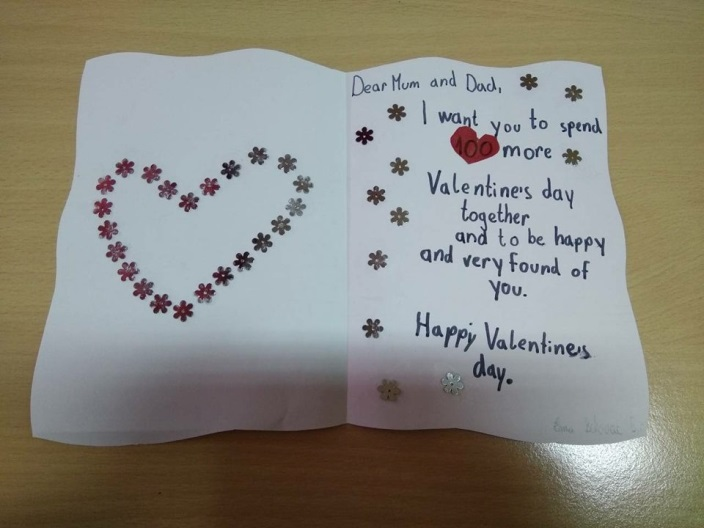 Dear Mum and Dad,
I want you to spend
100 more
Valentine's day
together
and to be happy
and very found of
you.
Happy Valentine's
day.